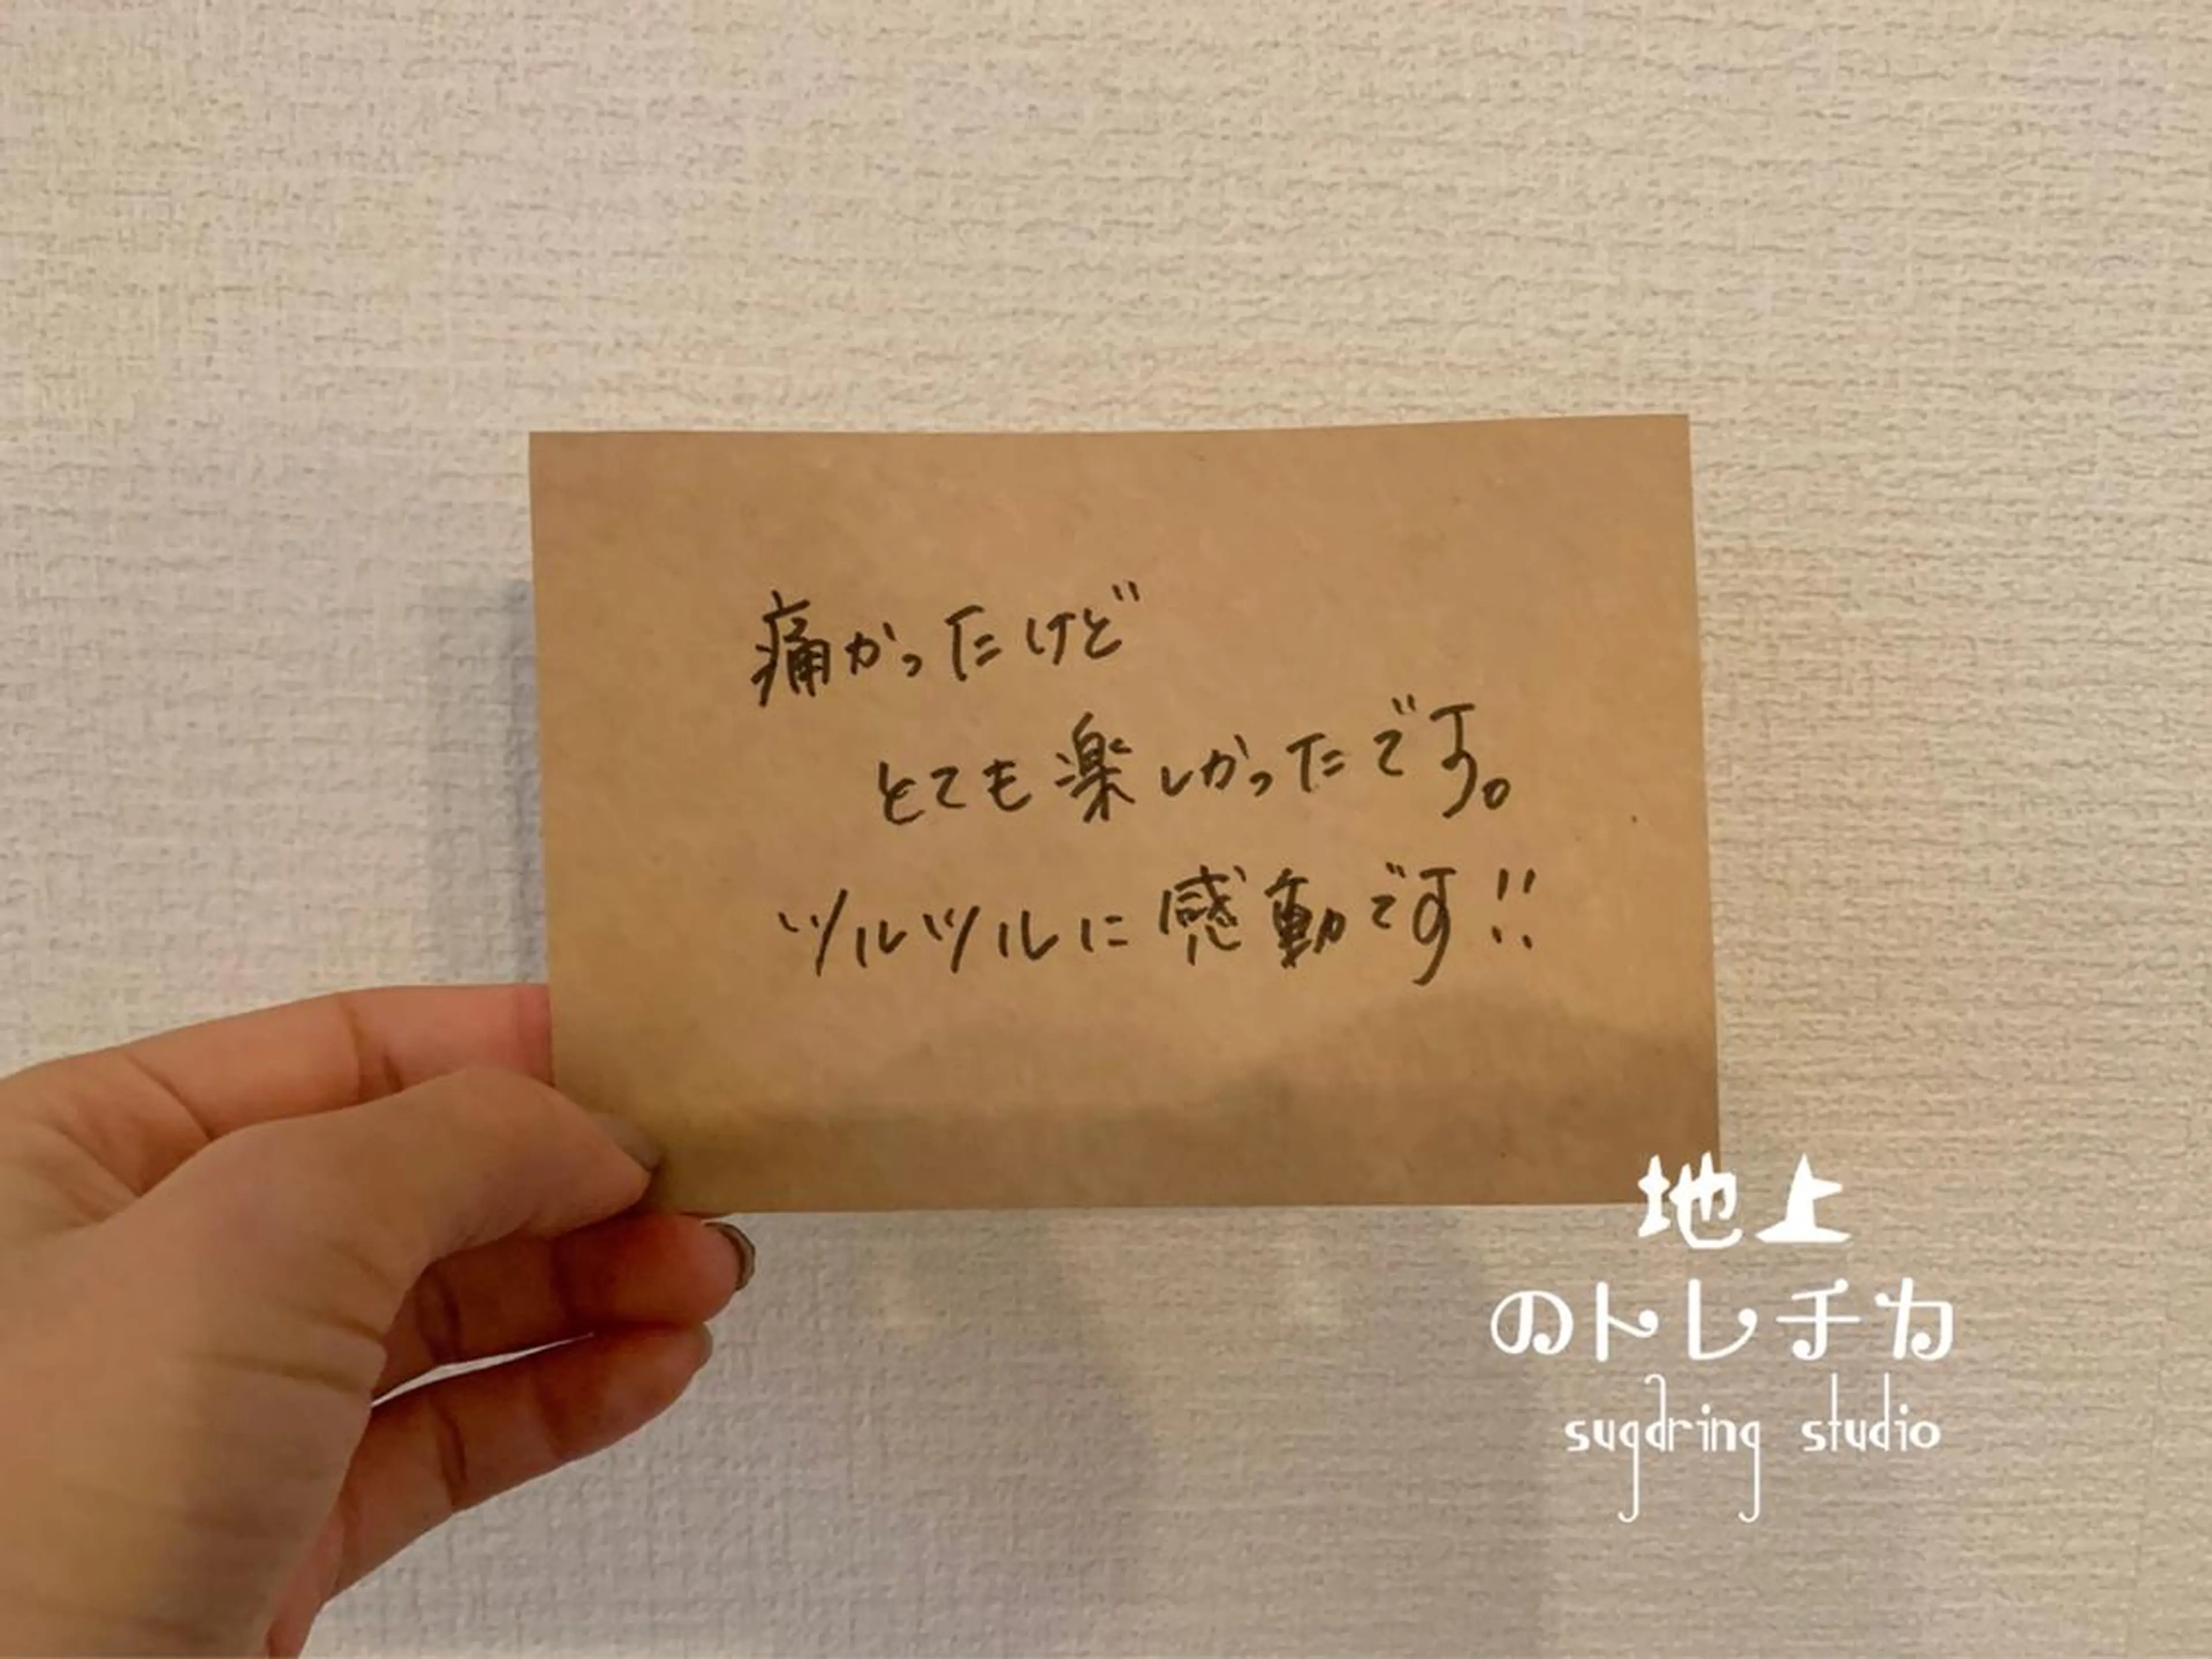 痛かったけど
とても楽しかったです。
ツルツルに感動です!!
地上
のトレチカ
sugaring studio